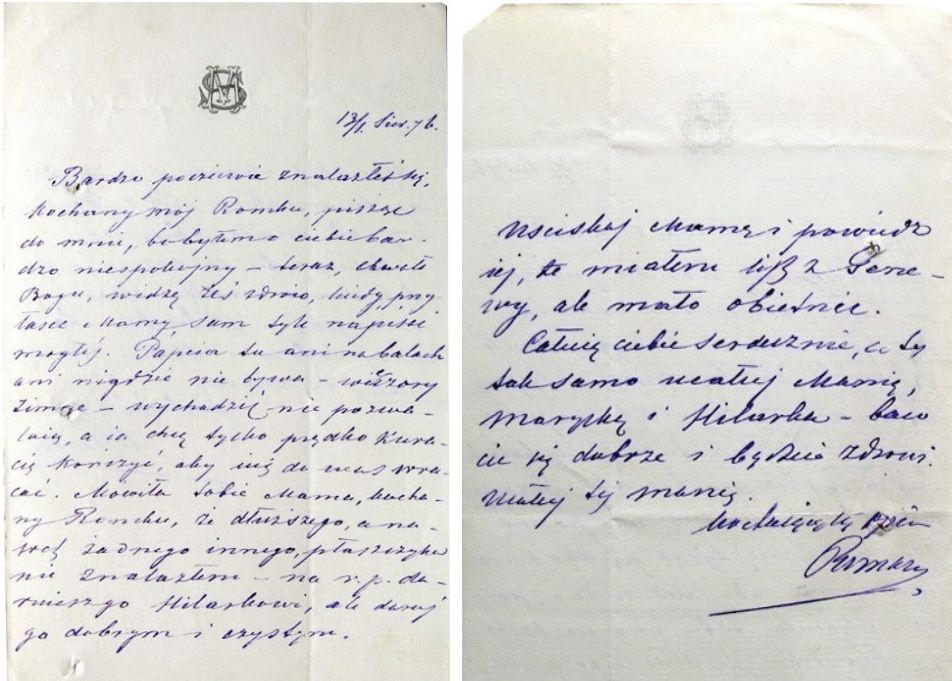 13/1. 76.
Bardzo poczciwie znalazłeś się,
kochany mój Romku, pisząc
do mnie, bo byłem o ciebie bar-
dzo niespokojny – teraz, chwała
Bogu, widzę żeś zdrów, kiedy przy
łasce Mamy, sam tyle napisać
mogłeś. Papcia tu ani na balach
ani nigdzie nie bywa – wieczory
zimne – wychodzić nie pozwa-
lają, a ja chcę tylko prędko kura-
cię kończyć, aby już do was wra-
cać. Mówiła Tobie Mama, kocha-
ny Romku, że dłuższego, a na-
wet żadnego innego, płaszczyka
nie znalazłem – na r. p. da-
Hilarkowi, ale daruj
go dobrym i czystym.
Uściskaj Mamę i powiedz
jej, że miałem list z Gene-
wy, ale mało obietnic.
Całuję ciebie serdecznie, a ty
tak samo ucałuj Manię,
Maryską i Hilarka – baw
cie się dobrze i bądźcie zdrowi.
Ucałuj tę Manię.
kochający Cię